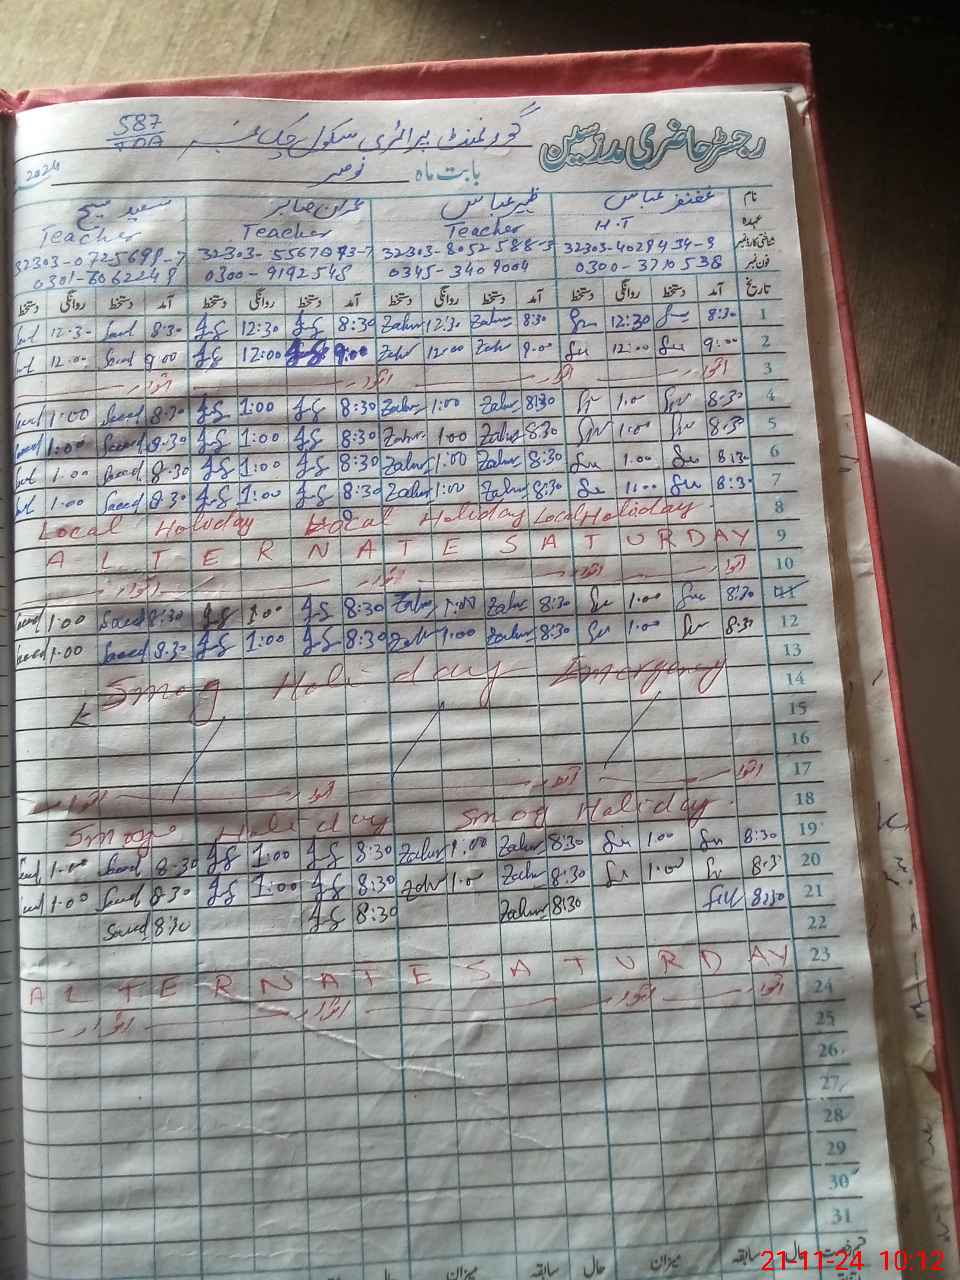 رجسٹر حاضری مدرسین گورنمنٹ پرائمری سکول چک نمبر 587 TDA
بابت ماہ نومبر 2024
نام غضنفر عباس ظہیر عباس عمران صابر سعید مسیح
عہدہ H.T Teacher Teacher Teacher
شناختی کارڈ نمبر 32303-4029434-9 32303-8052588-3 32303-5567093-7 32303-0725699-7
فون نمبر 0300-3710538 0345-3409004 0300-9192548 0301-6062249
تاریخ آمد دستخط روانگی دستخط آمد دستخط روانگی دستخط آمد دستخط روانگی دستخط آمد دستخط روانگی دستخط
1 8:30 12:30 8:30 Zahir 12:30 Zahir 8:30 12:30 8:30 Saeed 12:30
2 9:00 12:00 9:00 12:00 9:00 12:00 9:00 Saeed 12:00
3 اتوار اتوار اتوار اتوار
4 8:30 1:00 8:30 Zahir 1:00 Zahir 8:30 1:00 8:30 Saeed 1:00 Saeed
5 8:30 1:00 8:30 Zahir 1:00 Zahir 8:30 1:00 8:30 Saeed 1:00 Saeed
6 8:30 1:00 8:30 Zahir 1:00 Zahir 8:30 1:00 8:30 Saeed 1:00
7 8:30 1:00 8:30 Zahir 1:00 Zahir 8:30 1:00 8:30 Saeed 1:00
8 Local Holiday Local Holiday Local Holiday
9 ALTERNATE SATURDAY
10 اتوار اتوار اتوار اتوار
11 8:30 1:00 8:30 Zahir 1:00 Zahir 8:30 1:00 8:30 Saeed 1:00 Saeed
12 8:30 1:00 8:30 Zahir 1:00 Zahir 8:30 1:00 8:30 Saeed 1:00 Saeed
13 Smog Holiday Emergency
14
15
16
17 اتوار اتوار اتوار اتوار
18 Smog Holiday Smog Holiday
19 8:30 1:00 8:30 Zahir 1:00 Zahir 8:30 1:00 8:30 Saeed 1:00 Saeed
20 8:30 1:00 8:30 Zahir 1:00 Zahir 8:30 1:00 8:30 Saeed 1:00 Saeed
21 8:30 8:30 Zahir 8:30 8:30 Saeed
22
23 ALTERNATE SATURDAY
24 اتوار اتوار اتوار اتوار
25
26
27
28
29
30
31
سابقہ میزان حال سابقہ میزان حال
21-11-24 10:12